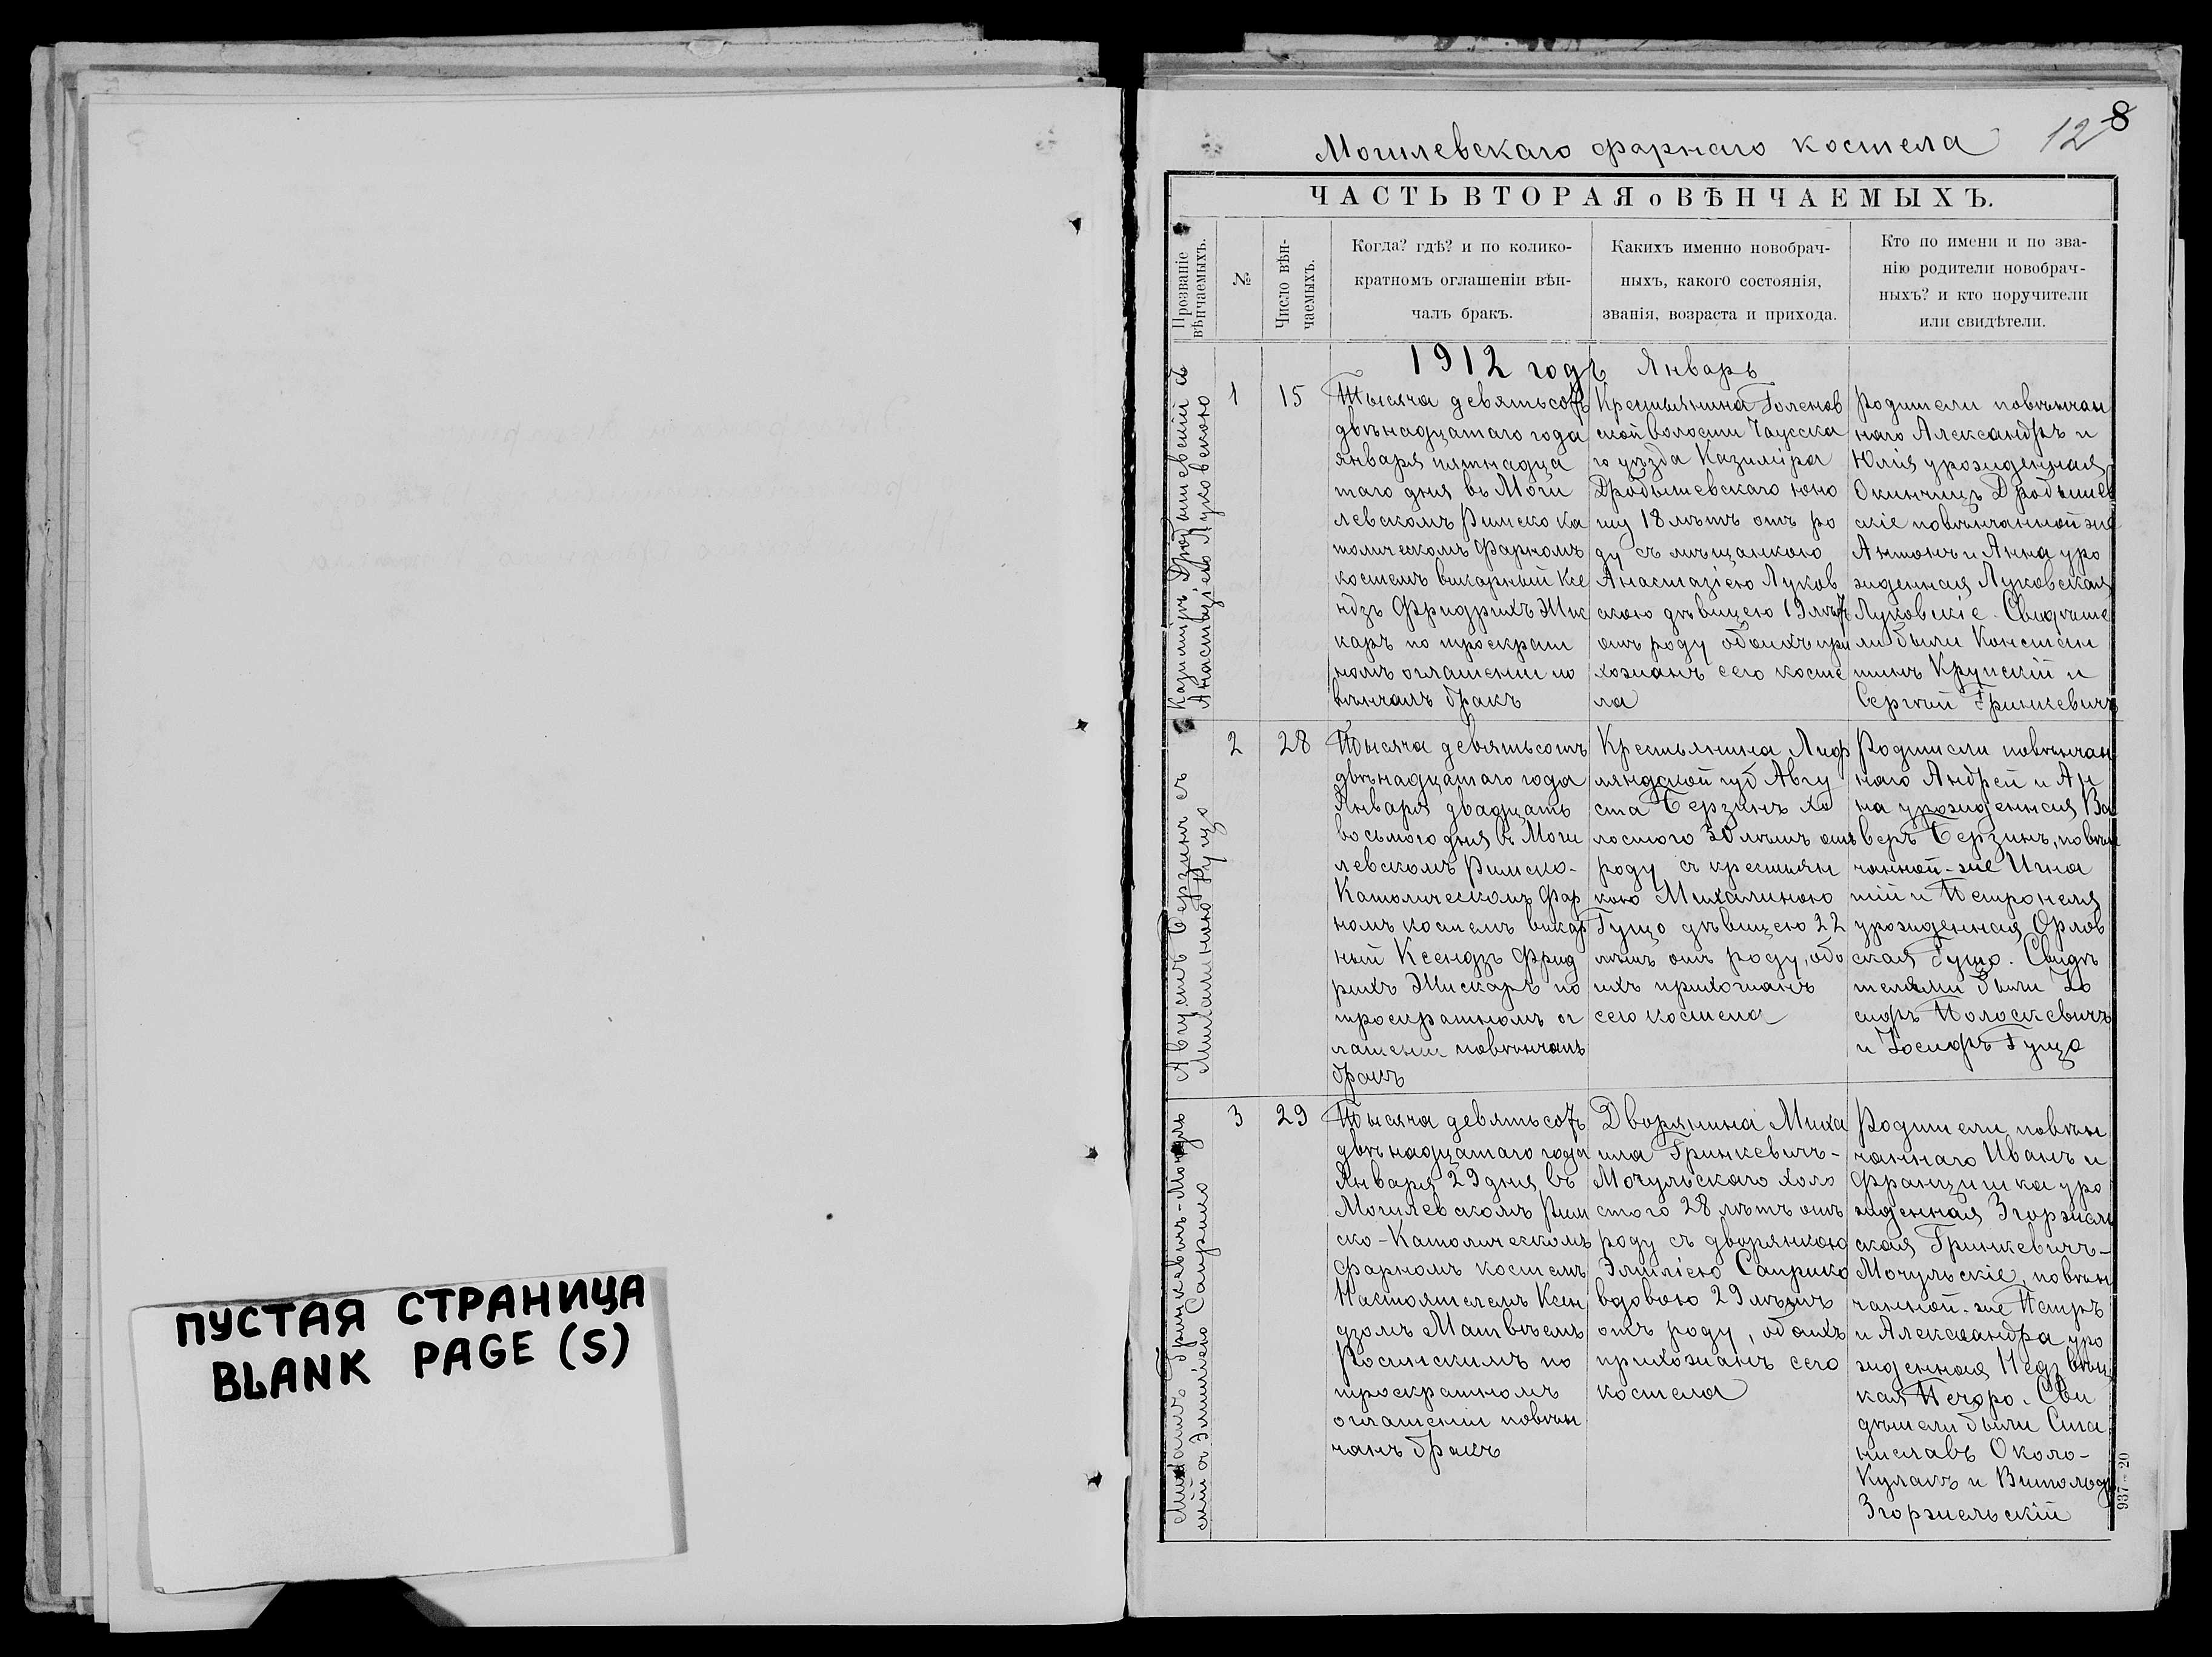 ПУСТАЯ СТРАНИЦА
BLANK PAGE (S)
Могилевскаго фарнаго костела
12 8
ЧАСТЬ ВТОРАЯ о ВѢНЧАЕМЫХЪ.
Прозваніе
вѣнчаемыхъ.
№
Число вѣн-
чаемыхъ.
Когда? гдѣ? и по колико-
кратномъ оглашеніи вѣн-
чалъ бракъ.
Какихъ именно новобрач-
ныхъ, какого состоянія,
званія, возраста и прихода.
Кто по имени и по зва-
нію родители новобрач-
ныхъ? и кто поручители
или свидѣтели.
1912 годъ Январь
Казиміръ Дробышевскій съ
Анастазіею Луковскою
1
15
Тысяча девятьсотъ
двѣнадцатаго года
января пятнадца
таго дня въ Моги
левскомъ Римско ка
толическомъ Фарномъ
костелѣ викарный Ксе
ндзъ Фридрихъ Жис
каръ по троекрат
номъ оглашении по
вѣнчалъ бракъ
Крестьянина Голенов
ской волости Чаусска
го уѣзда Казиміра
Дробышевскаго юно
шу 18 лѣтъ отъ ро
ду съ мѣщанкою
Анастазіею Луков
скою дѣвицею 19 лѣтъ
отъ роду обоихъ при
хожанъ сего косте
ла
Родители повѣнчан
наго Александръ и
Юлія урожденная
Окинчицъ Дробышев
скіе повѣнчанной же
Антонъ и Анна уро
жденная Луковская
Луковскіе. Свидѣте
ли были Констан
тинъ Крупскій и
Сергѣй Гринкевичъ
Августъ Берзинъ съ
Михалиною Гуцо
2
28
Тысяча девятьсотъ
двѣнадцатаго года
Января двадцать
восьмого дня въ Моги
левскомъ Римско-
Католическомъ Фар
номъ костелѣ викар
ный Ксендзъ Фрид
рихъ Жискаръ по
троекратномъ ог
лашении повѣнчалъ
бракъ
Крестьянина Лиф
ляндской губ Авгу
ста Берзинъ хо
лостого 30 лѣтъ отъ
роду съ крестьян
кою Михалиною
Гуцо дѣвицею 22
лѣтъ отъ роду, обо
ихъ прихожанъ
сего костела
Родители повѣнчан
наго Андрей и Ан
на урожденная Ва
веръ Берзинъ, повѣн
чанной-же Игна
тій и Петронеля
урожденная Орлов
ская Гуцо. Свидѣ
телями были Іо
сифъ Полоскевичъ
и Іосифъ Гуцо
Михаилъ Гринкевичъ-Мочуль
скій съ Эмиліею Саприко
3
29
Тысяча девятьсотъ
двѣнадцатаго года
Января 29 дня въ
Могилевскомъ Рим
ско-Католическомъ
Фарномъ костелѣ
Настоятелемъ Ксен
дзомъ Матвѣемъ
Росинскимъ по
троекратномъ
оглашении повѣн
чанъ бракъ
Дворянина Миха
ила Гринкевичъ-
Мочульскаго холо
стого 28 лѣтъ отъ
роду съ дворянкою
Эмиліею Саприко
вдовою 29 лѣтъ
отъ роду, обоихъ
прихожанъ сего
костела
Родители повѣн
чаннаго Иванъ и
Францишка уро
жденная Згоржель
ская Гринкевичъ-
Мочульскіе, повѣн
чанной-же Петръ
и Александра уро
жденная Недвѣц
кая Печоро. Сви
дѣтели были Ста
ниславъ Около-
Кулакъ и Витольдъ
Згоржельскій
937-20